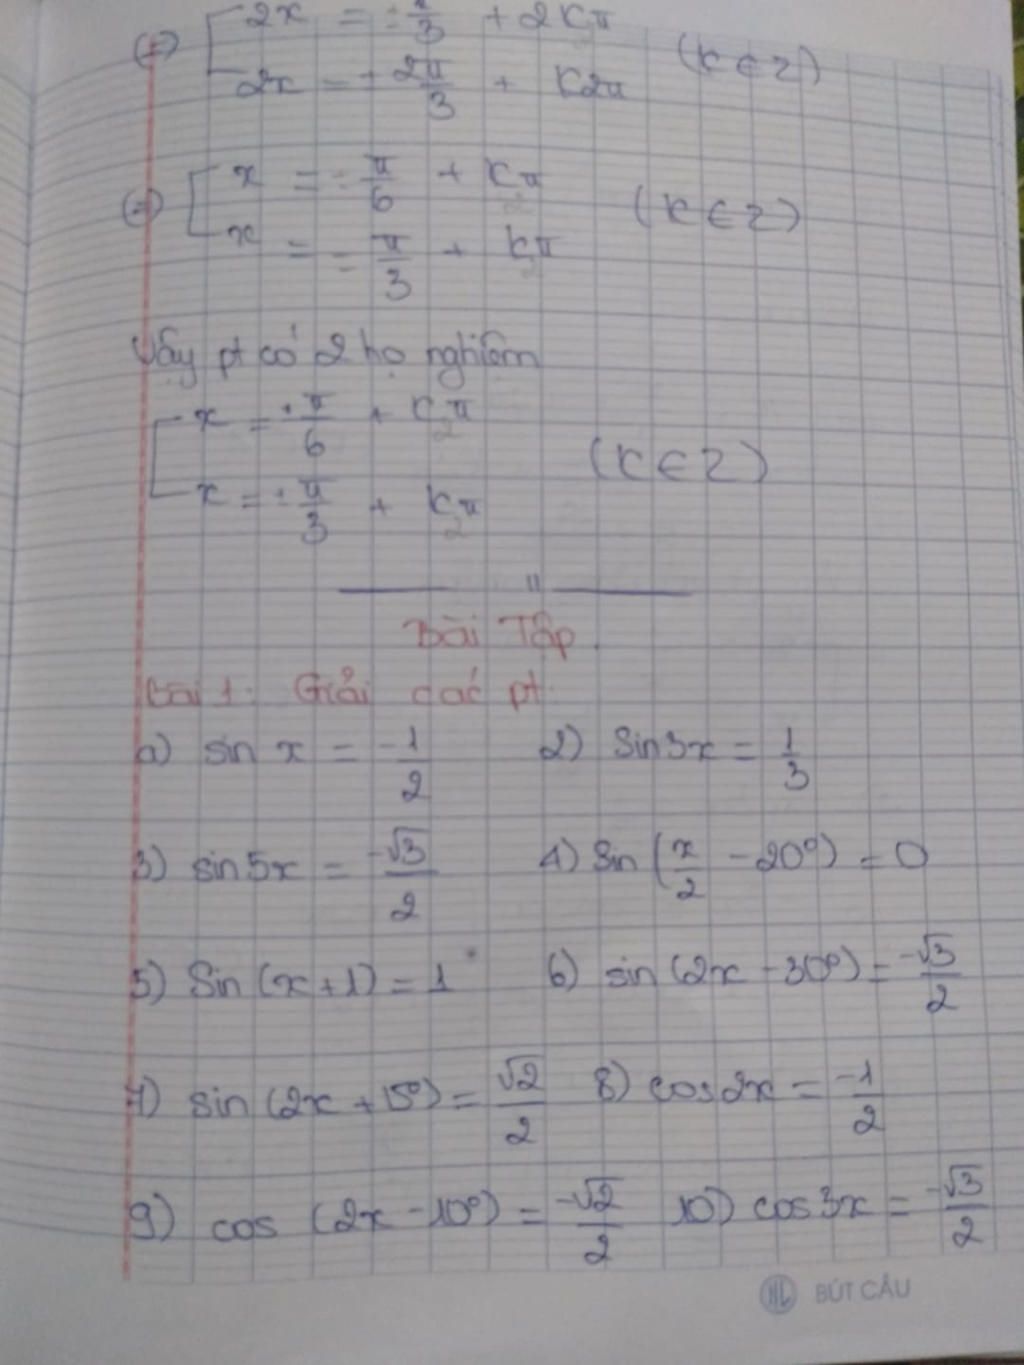 (=) [ 2x = -π/3 + 2kπ
2x = -2π/3 + k2π (k ∈ Z)
(=) [ x = -π/6 + kπ
x = -π/3 + kπ (k ∈ Z)
Vậy pt có 2 họ nghiệm
[ x = -π/6 + kπ
x = -π/3 + kπ (k ∈ Z)
"
Bài Tập.
Bài 1: Giải các pt.
a) sin x = -1/2 2) Sin3x = 1/3
3) sin5x = -√3/2 4) Sin (x/2 - 20°) = 0
5) Sin (x+1) = 1 6) sin (2x - 30°) = -√3/2
7) sin (2x + 15°) = √2/2 8) cos2x = -1/2
9) cos (2x - 10°) = -√2/2 10) cos3x = -√3/2
HL BÚT CÂU